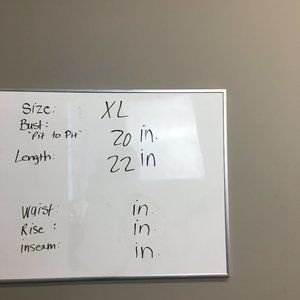 Size: XL
Bust:
"Pit to Pit" 20 in.
Length: 22 in
Waist: in.
Rise: in.
inseam: in.